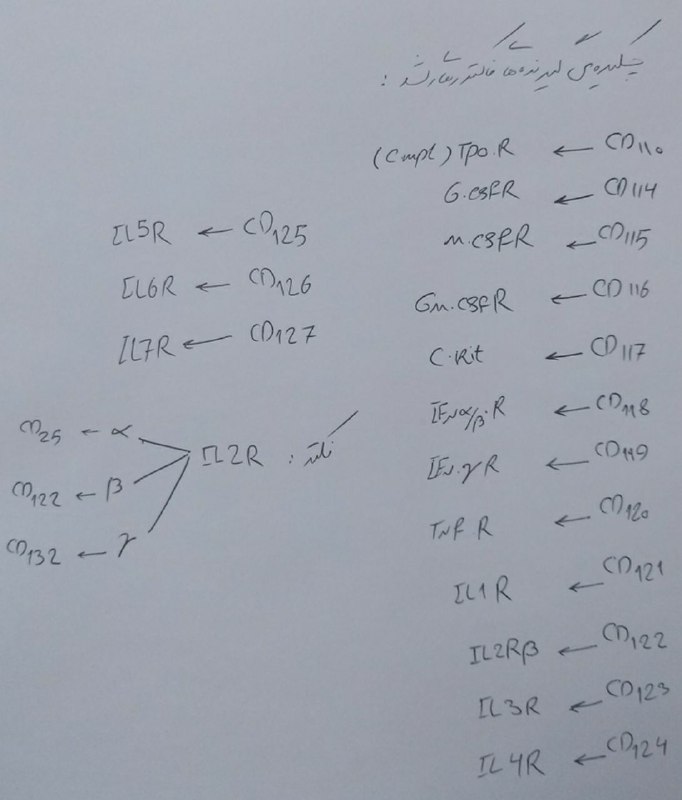 چکیده‌ی گیرنده‌ها فاکتور رشد :
(Cmpl) TPO.R ← CD110
G.CSFR ← CD114
M.CSFR ← CD115
GM.CSFR ← CD116
C.Kit ← CD117
IFNα/β.R ← CD118
IFN.γR ← CD119
TNF R ← CD120
IL1R ← CD121
IL2Rβ ← CD122
IL3R ← CD123
IL4R ← CD124
IL5R ← CD125
IL6R ← CD126
IL7R ← CD127
نکته : IL2R
CD25 ← α
CD122 ← β
CD132 ← γ